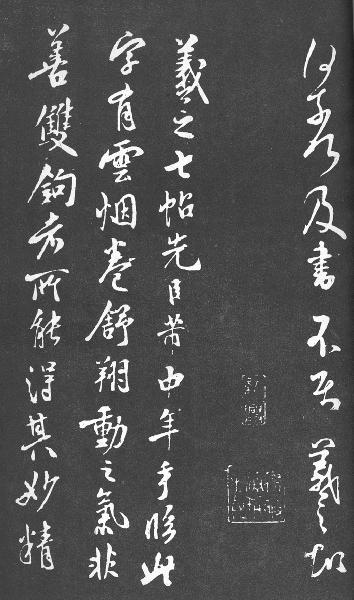 及書不具羲之頓
羲之七帖先臣芾中年手臨此
字有雲烟卷舒翔動之氣非
善雙鉤者所能得其妙精